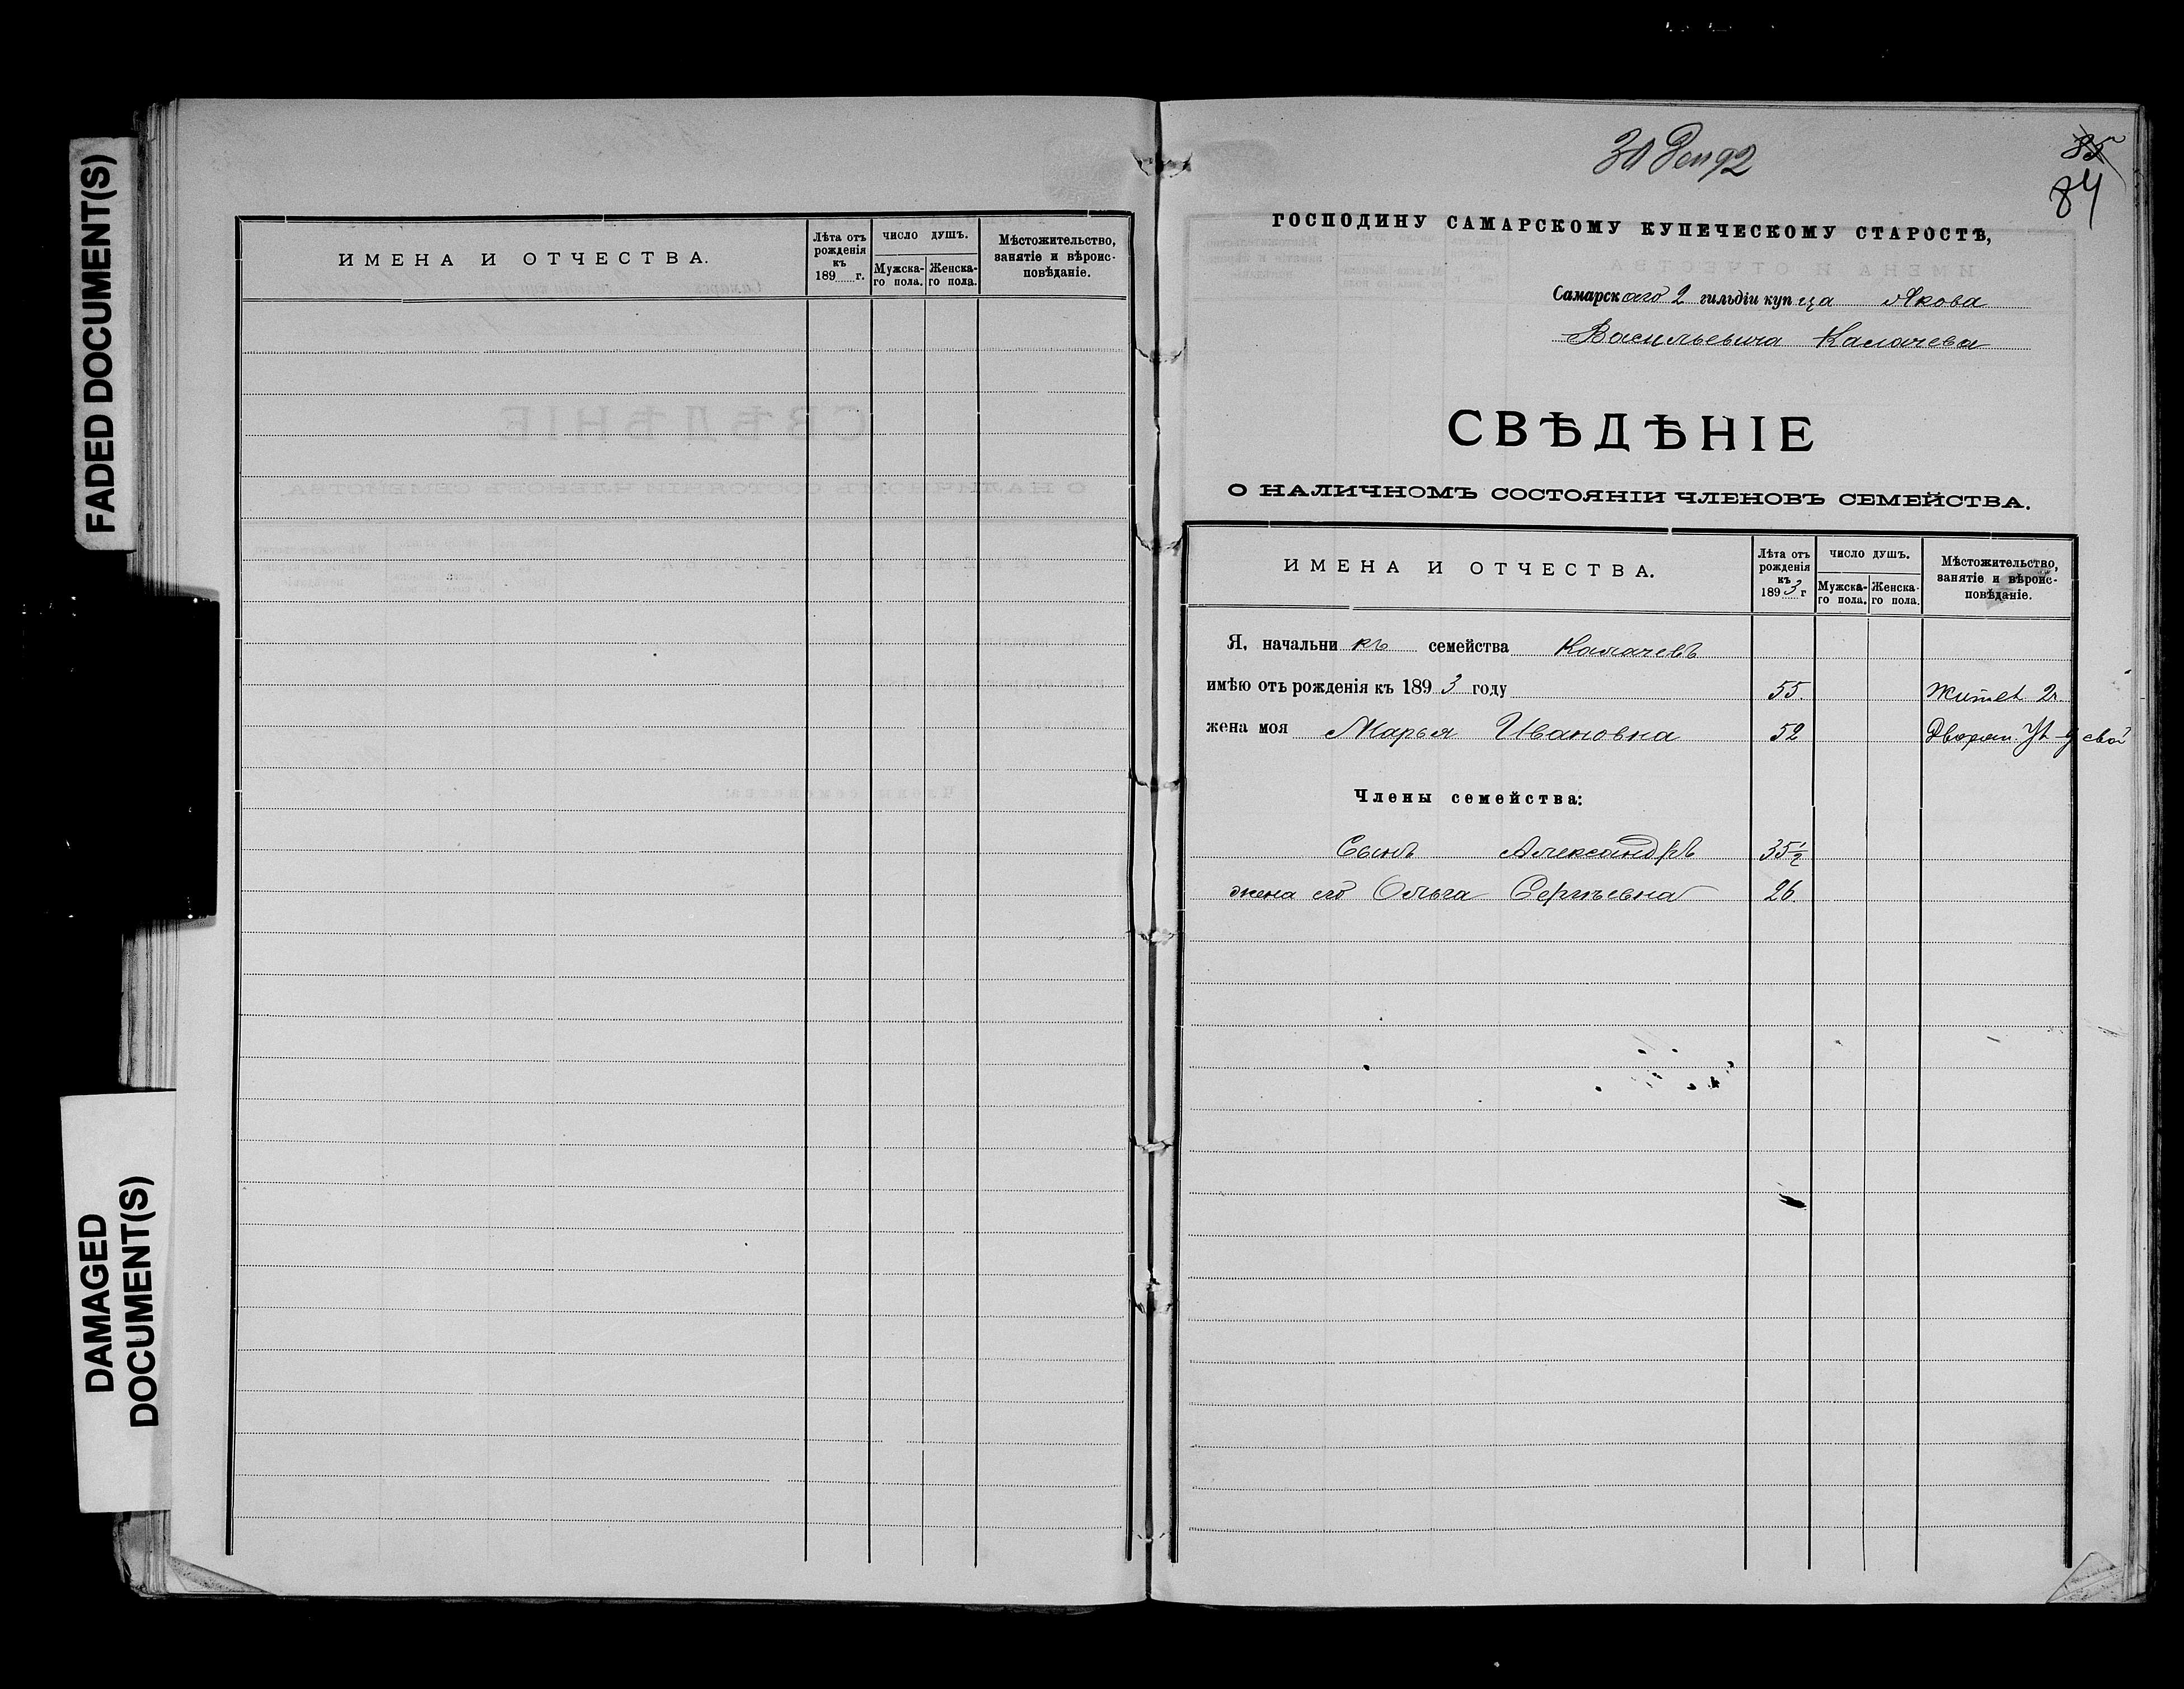 FADED DOCUMENT(S)
DAMAGED
DOCUMENT(S)
ИМЕНА И ОТЧЕСТВА.
Лѣта отъ
рожденія
къ
189 г.
ЧИСЛО ДУШЪ.
Мужска-
го пола.
Женска-
го пола.
Мѣстожительство,
занятіе и вѣроис-
повѣданіе.
30 Дек 92
85
84
ГОСПОДИНУ САМАРСКОМУ КУПЕЧЕСКОМУ СТАРОСТѢ,
Самарскаго 2 гильдіи купца Якова
Васильевича Калачева
СВѢДѢНІЕ
О НАЛИЧНОМЪ СОСТОЯНІИ ЧЛЕНОВЪ СЕМЕЙСТВА.
ИМЕНА И ОТЧЕСТВА.
Лѣта отъ
рожденія
къ
1893 г
ЧИСЛО ДУШЪ.
Мужска-
го пола.
Женска-
го пола.
Мѣстожительство,
занятіе и вѣроис-
повѣданіе.
Я, начальникъ семейства Калачевъ
имѣю отъ рожденія къ 1893 году 55. 2ч
жена моя Марья Ивановна 52 Дворян. Ул
Члены семейства:
Сынъ Александръ 35½
жена его Ольга Сергѣевна 26.